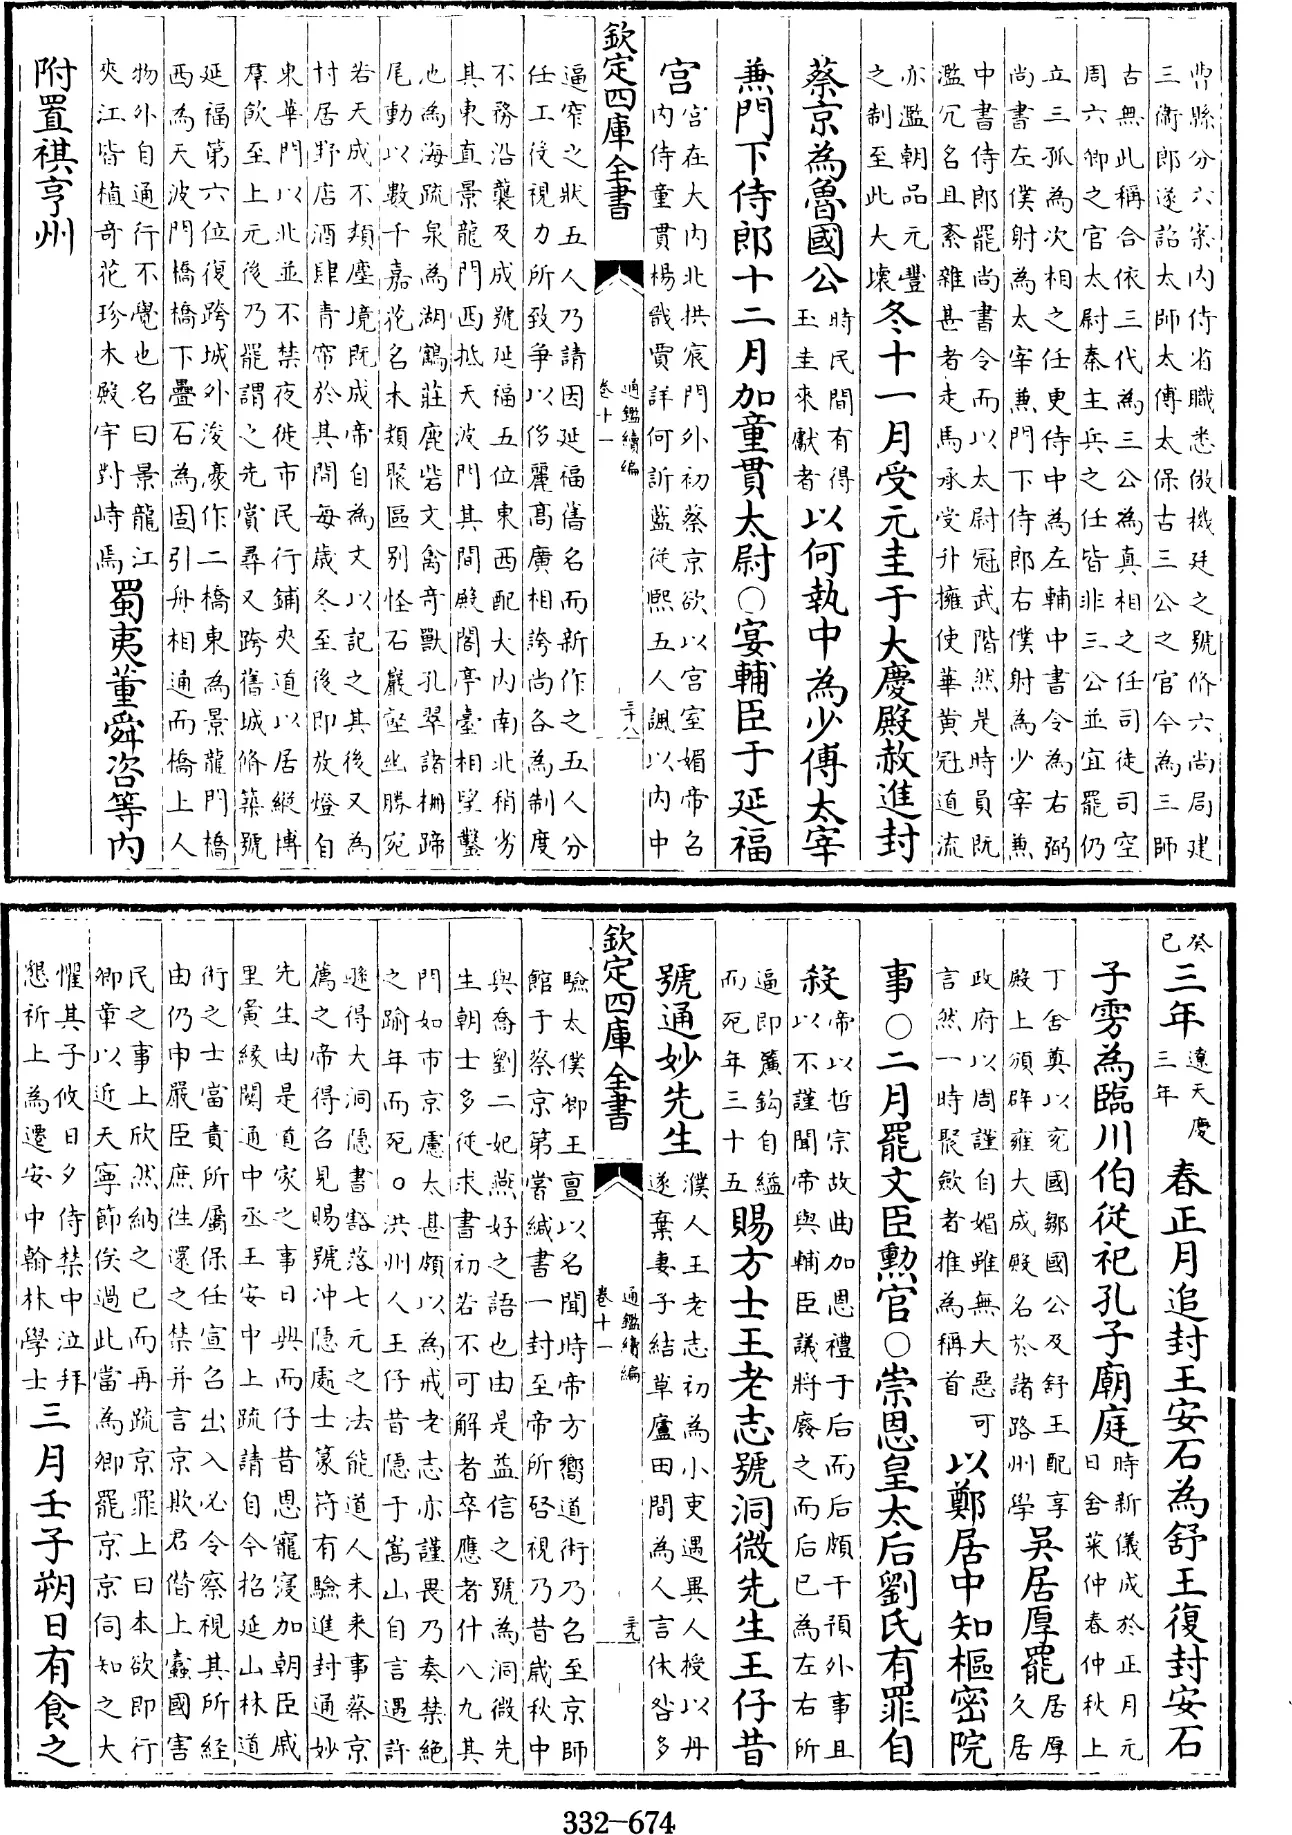 曹縣分六案内侍省職悉倣機廷之號脩六尚局建
三衛郎遂詔太師太傅太保古三公之官今為三師
古無此稱合依三代為三公為真相之任司徒司空
周六卿之官太尉秦主兵之任皆非三公並宜罷仍
立三孤為次相之任更侍中為左輔中書令為右弼
尚書左僕射為太宰兼門下侍郎右僕射為少宰兼
中書侍郎罷尚書令而以太尉冠武階然是時員既
濫冗名且紊雜甚者走馬承受升擁使華黄冠道流
亦濫朝品元豐
之制至此大壞
冬十一月受元圭于大慶殿赦進封
蔡京為魯國公
時民間有得
玉圭來獻者
以何執中為少傅太宰
兼門下侍郎十二月加童貫太尉○宴輔臣于延福
宫
宫在大内北拱宸門外初蔡京欲以宫室媚帝召
内侍童貫楊戩賈詳何訢藍從熙五人諷以内中
欽定四庫全書
通鑑續編
卷十一
三十八
逼窄之狀五人乃請因延福舊名而新作之五人分
任工役視力所致爭以侈麗髙廣相誇尚各為制度
不務沿襲及成號延福五位東西配大内南北稍劣
其東直景龍門西抵天波門其間殿閣亭臺相望鑿
也為海疏泉為湖鶴莊鹿砦文禽奇獸孔翠諸柵蹄
尾動以數千嘉花名木類聚區别怪石巖壑幽勝宛
若天成不類塵境既成帝自為文以記之其後又為
村居野店酒肆青帘於其間每歳冬至後即放燈自
東華門以北並不禁夜徙市民行鋪夾道以居縱博
羣飲至上元後乃罷謂之先賞尋又跨舊城脩築號
延福第六位復跨城外浚豪作二橋東為景龍門橋
西為天波門橋橋下疊石為固引舟相通而橋上人
物外自通行不覺也名曰景龍江
夾江皆植奇花珍木殿宇對峙焉
蜀夷董舜咨等内
附置祺亨州
癸
巳
三年
遼天慶
三年
春正月追封王安石為舒王復封安石
子雱為臨川伯從祀孔子廟庭
時新儀成於正月元
日舍菜仲春仲秋上
丁舍奠以兖國鄒國公及舒王配享
殿上頒辟雍大成殿名於諸路州學
吳居厚罷
居厚
久居
政府以周謹自媚雖無大惡可
言然一時聚斂者推為稱首
以鄭居中知樞密院
事○二月罷文臣勲官○崇恩皇太后劉氏有罪自
殺
帝以哲宗故曲加恩禮于后而后頗干預外事且
以不謹聞帝與輔臣議將廢之而后已為左右所
逼即簾鈎自縊
而死年三十五
賜方士王老志號洞微先生王仔昔
號通妙先生
濮人王老志初為小吏遇異人授以丹
遂棄妻子結草廬田間為人言休咎多
欽定四庫全書
通鑑續編
卷十一
三十九
驗太僕卿王亶以名聞時帝方嚮道術乃召至京師
館于蔡京第嘗緘書一封至帝所啓視乃昔歳秋中
與喬劉二妃燕好之語也由是益信之號為洞微先
生朝士多徒求書初若不可解者卒應者什八九其
門如市京慮太甚頗以為戒老志亦謹畏乃奏禁絶
之踰年而死○洪州人王仔昔隱于嵩山自言遇許
遜得大洞隱書豁落七元之法能道人未來事蔡京
薦之帝得召見賜號冲隱處士篆符有驗進封通妙
先生由是道家之事日興而仔昔恩寵寖加朝臣戚
里夤緣関通中丞王安中上疏請自今招延山林道
術之士當責所屬保任宣召出入必令察視其所經
由仍申嚴臣庶徃還之禁并言京欺君僭上蠧國害
民之事上欣然納之已而再疏京罪上曰本欲即行
卿章以近天寧節俟過此當為卿罷京京伺知之大
懼其子攸日夕侍禁中泣拜
懇祈上為遷安中翰林學士
三月壬子朔日有食之
332-674